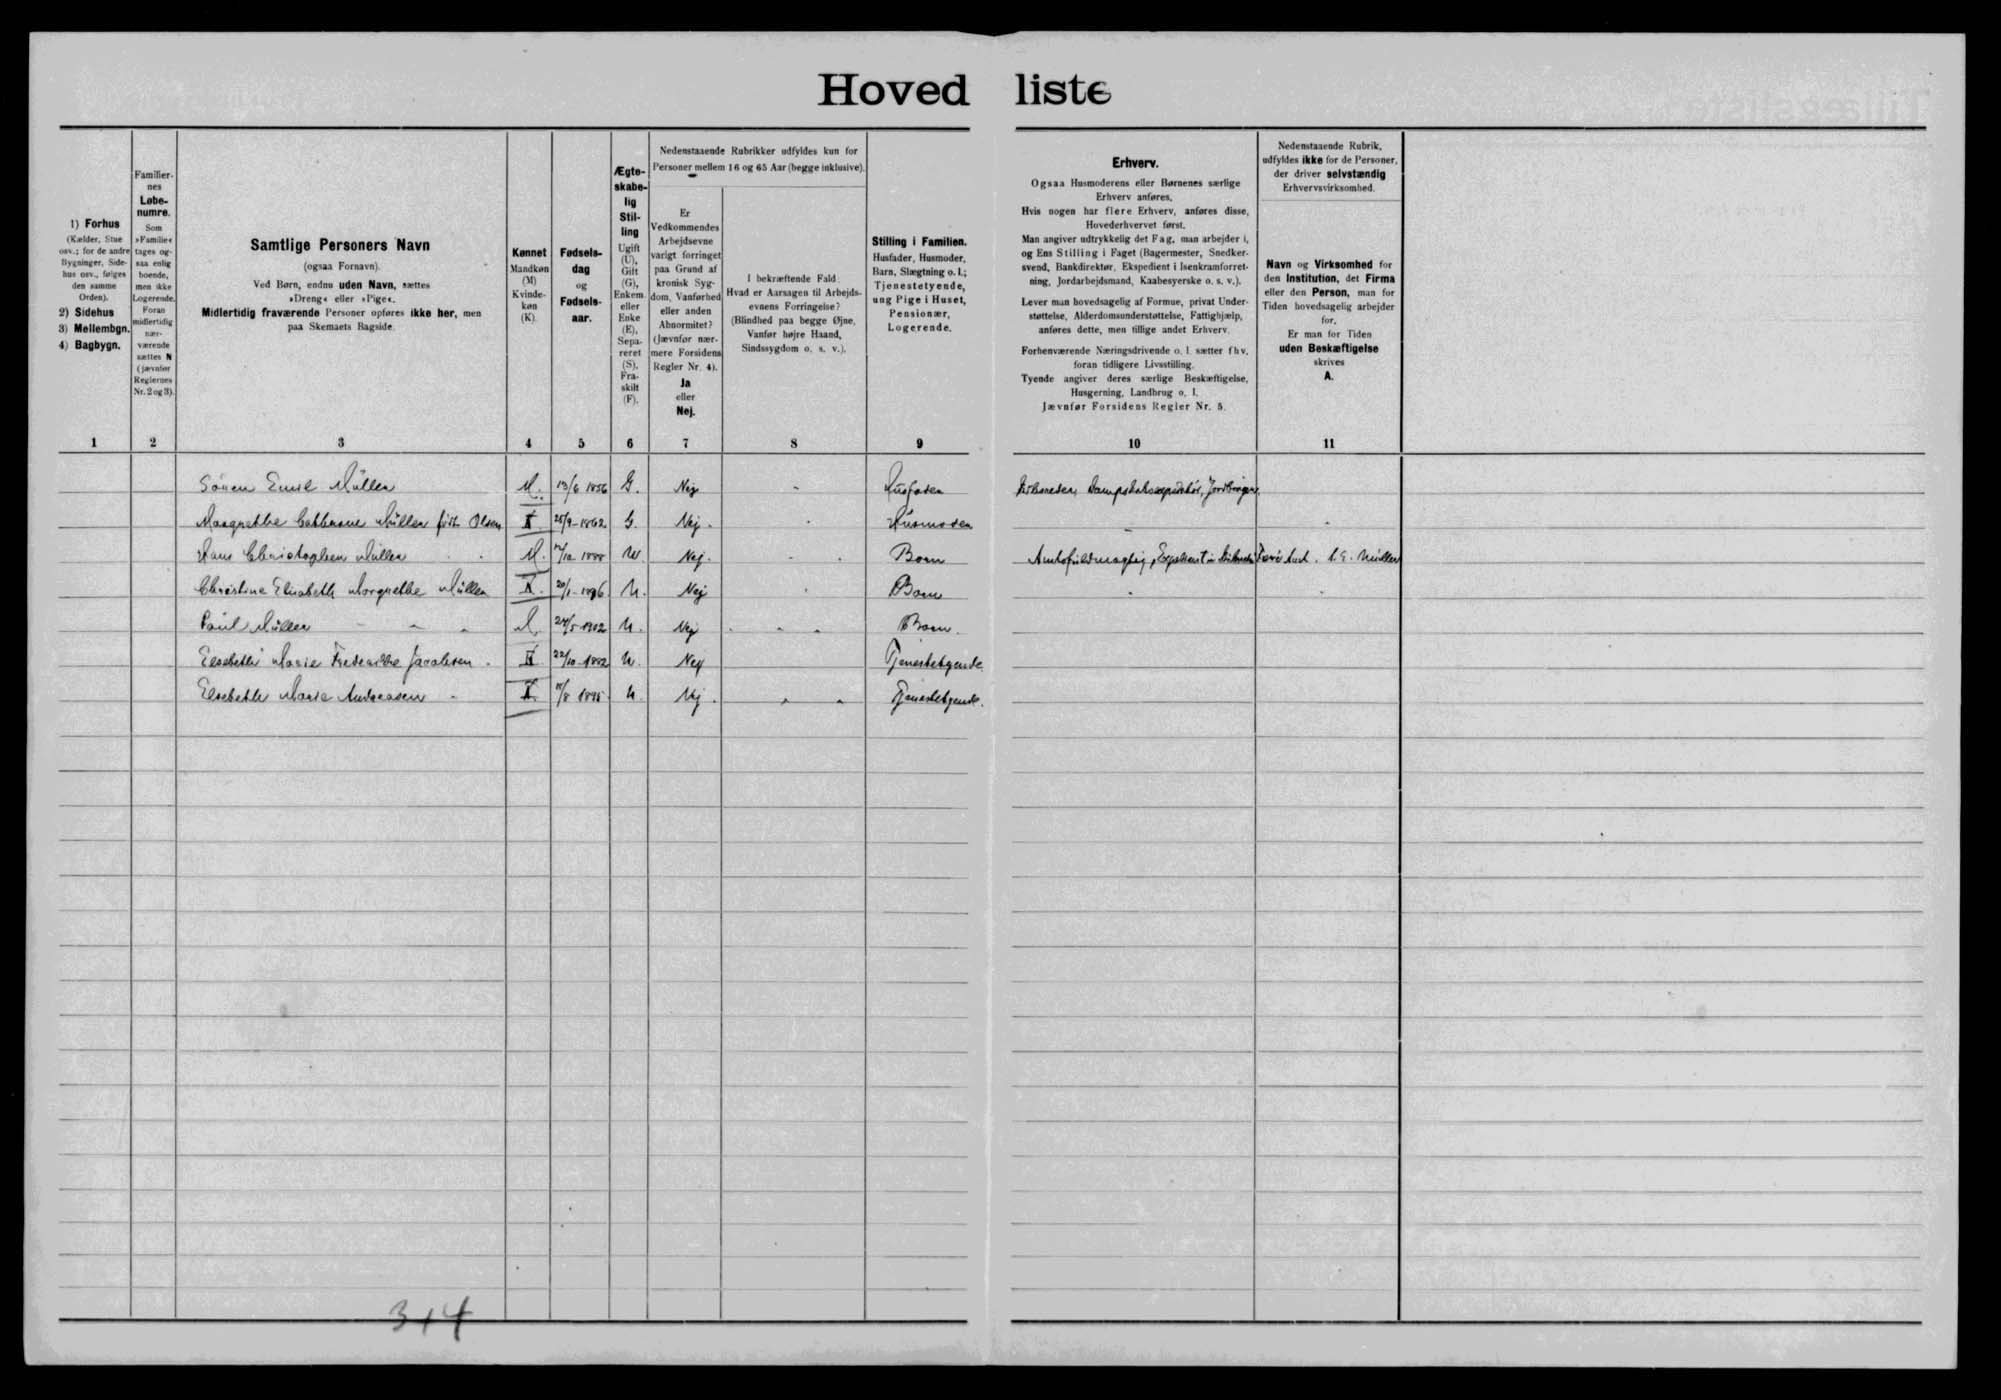 Hovedliste
1) Forhus
(Kælder, Stue
osv.; for de andre
Bygninger, Side-
hus osv., følges
den samme
Orden).
2) Sidehus
3) Mellembgn.
4) Bagbygn.
Familier-
nes
Løbe-
numre.
Som
»Familie«
tages og-
saa enlig
boende,
men ikke
Logerende.
Foran
midlertidig
nær-
værende
sættes N
(jævnfør
Reglernes
Nr. 2 og 3).
Samtlige Personers Navn
(ogsaa Fornavn).
Ved Børn, endnu uden Navn, sættes
»Dreng« eller »Pige«.
Midlertidig fraværende Personer opføres ikke her, men
paa Skemaets Bagside.
Kønnet
Mandkøn
(M)
Kvinde-
køn
(K).
Fødsels-
dag
og
Fødsels-
aar.
Ægte-
skabe-
lig
Stil-
ling
Ugift
(U),
Gift
(G),
Enkem.
eller
Enke
(E),
Sepa-
reret
(S),
Fra-
skilt
(F).
Nedenstaaende Rubrikker udfyldes kun for
Personer mellem 16 og 65 Aar (begge inklusive).
Er
Vedkommendes
Arbejdsevne
varigt forringet
paa Grund af
kronisk Syg-
dom, Vanførhed
eller anden
Abnormitet?
(Jævnfør nær-
mere Forsidens
Regler Nr. 4).
Ja
eller
Nej.
I bekræftende Fald:
Hvad er Aarsagen til Arbejds-
evnens Forringelse?
(Blindhed paa begge Øjne,
Vanfør højre Haand,
Sindssygdom o. s. v.).
Stilling i Familien.
Husfader, Husmoder,
Barn, Slægtning o. l.;
Tjenestetyende,
ung Pige i Huset,
Pensionær,
Logerende.
Erhverv.
Ogsaa Husmoderens eller Børnenes særlige
Erhverv anføres.
Hvis nogen har flere Erhverv, anføres disse,
Hovederhvervet først.
Man angiver udtrykkelig det Fag, man arbejder i,
og Ens Stilling i Faget (Bagermester, Snedker-
svend, Bankdirektør, Ekspedient i Isenkramforret-
ning, Jordarbejdsmand, Kaabesyerske o. s. v.).
Lever man hovedsagelig af Formue, privat Under-
støttelse, Alderdomsunderstøttelse, Fattighjælp,
anføres dette, men tillige andet Erhverv.
Forhenværende Næringsdrivende o. l. sætter fhv.
foran tidligere Livsstilling.
Tyende angiver deres særlige Beskæftigelse,
Husgerning, Landbrug o. l.
Jævnfør Forsidens Regler Nr. 5.
Nedenstaaende Rubrik,
udfyldes ikke for de Personer,
der driver selvstændig
Erhvervsvirksomhed.
Navn og Virksomhed for
den Institution, det Firma
eller den Person, man for
Tiden hovedsagelig arbejder
for.
Er man for Tiden
uden Beskæftigelse
skrives
A.
1 2 3 4 5 6 7 8 9 10 11
Sören Emil Müller M. 13/6 1856 G. Nej - Husfader
Margrethe Cathrine Müller født Olsen K 28/9-1862 G. Nej. Husmoder
Hans Christopher Müller M. 1888 U Nej. Barn
Christine Elisabeth Margrethe Müller K. 20/1-1896 U. Nej Barn
Paul Müller M. 24/5-1902 U. Nej Barn.
Elsebeth Marie Frederikke Jacobsen K. 22/10-1882 U. Nej Tjenestetyende.
Elsebeth Marie Andreasen K. U. Nej. Tjenestetyende.
314